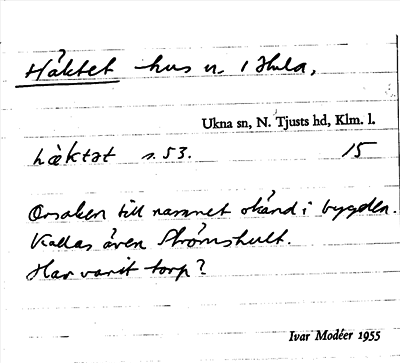 Häktet hus u. 1 Hula,
Ukna sn, N. Tjusts hd, Klm. l.
häktət s. 53. 15
Orsaken till namnet okänd i bygden.
Kallas även Strömshult.
Har varit torp?
Ivar Modéer 1955